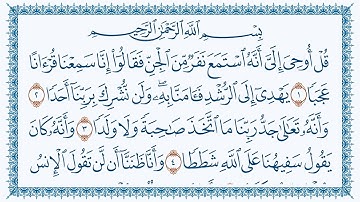 بِسْمِ ٱللَّهِ ٱلرَّحْمَٰنِ ٱلرَّحِيمِ
قُلْ أُوحِىَ إِلَىَّ أَنَّهُ ٱسْتَمَعَ نَفَرٌ مِّنَ ٱلْجِنِّ فَقَالُوٓا۟ إِنَّا سَمِعْنَا قُرْءَانًا
عَجَبًا ١ يَهْدِىٓ إِلَى ٱلرُّشْدِ فَـَٔامَنَّا بِهِۦ وَلَن نُّشْرِكَ بِرَبِّنَآ أَحَدًا ٢
وَأَنَّهُۥ تَعَٰلَىٰ جَدُّ رَبِّنَا مَا ٱتَّخَذَ صَٰحِبَةً وَلَا وَلَدًا ٣ وَأَنَّهُۥ كَانَ
يَقُولُ سَفِيهُنَا عَلَى ٱللَّهِ شَطَطًا ٤ وَأَنَّا ظَنَنَّآ أَن لَّن تَقُولَ ٱلْإِنسُ